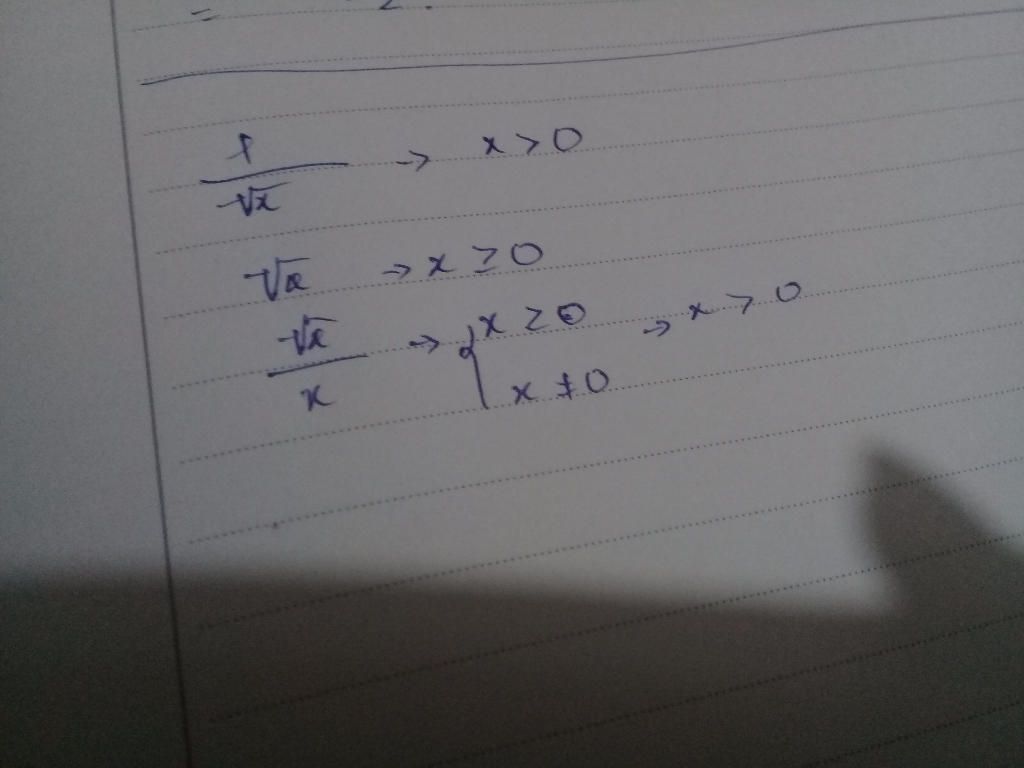 = 2.
1/√x → x > 0
√x → x ≥ 0
√x/x → { x ≥ 0 → x > 0
x ≠ 0